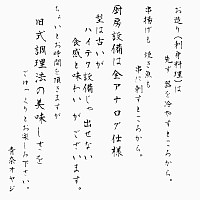 お造り(刺身料理)は
先ず器を冷やすところから。
串揚げも焼き魚も
串に刺すところから。
厨房設備は全アナログ仕様
型は古いが
ハイテク設備じゃ出せない
食感と味わいがございます。
ちょいとお時間を頂きますが
旧式調理法の美味しさを
ごゆっくりとお楽しみ下さい。
オヤジ